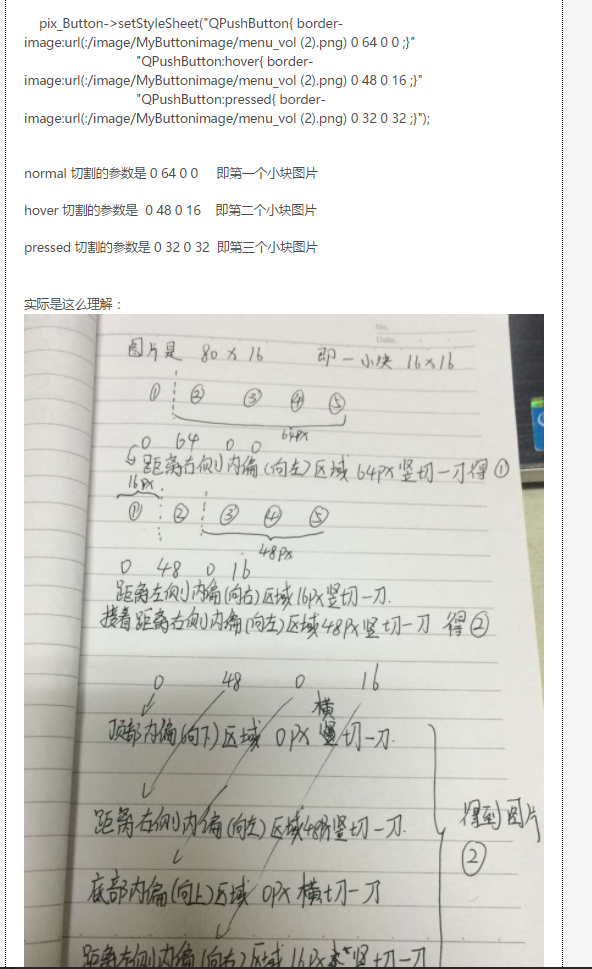 pix_Button->setStyleSheet("QPushButton{ border-
image:url(:/image/MyButtonimage/menu_vol (2).png) 0 64 0 0 ;}"
"QPushButton:hover{ border-
image:url(:/image/MyButtonimage/menu_vol (2).png) 0 48 0 16 ;}"
"QPushButton:pressed{ border-
image:url(:/image/MyButtonimage/menu_vol (2).png) 0 32 0 32 ;}");
normal 切割的参数是 0 64 0 0 即第一个小块图片
hover 切割的参数是 0 48 0 16 即第二个小块图片
pressed 切割的参数是 0 32 0 32 即第三个小块图片
实际是这么理解：
No.
Date.
图片是 80 x 16 即一小块 16x16
① ② ③ ④ ⑤
64px
0 64 0 0
距离右侧内偏(向左)区域 64px 竖切一刀得 ①
16px
① ② ③ ④ ⑤
48px
0 48 0 16
距离左侧内偏(向右)区域16px竖切一刀.
接着距离右侧内偏(向左)区域48px竖切一刀 得②
0 48 0 16
横
顶部内偏(向下)区域 0px 切一刀.
距离右侧内偏(向左)区域48px竖切一刀.
得到图片
②
底部内偏(向上)区域 0px 横切一刀
距离左侧内偏(向右)区域 16px 竖切一刀